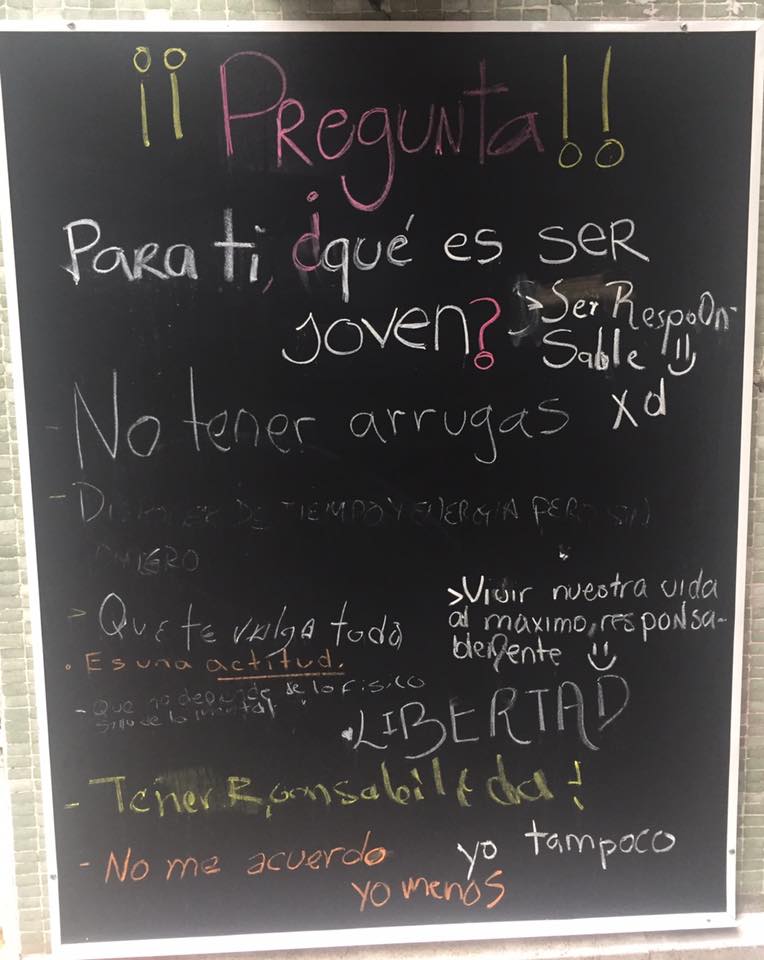 ¡¡ Pregunta!!
Para ti, ¿qué es ser
joven?
>Ser Respoon-
sable
xd
- No tener arrugas
- Disponer de tiempo y energía pero sin
dinero
> Que te valga todo
>Vivir nuestra vida
al maximo, responsa-
blemente
• Es una actitud.
- Que no depende de lo fisico
sino de lo mental
• LIBERTAD
- Tener Rponsabilidda!
- No me acuerdo
yo tampoco
yo menos